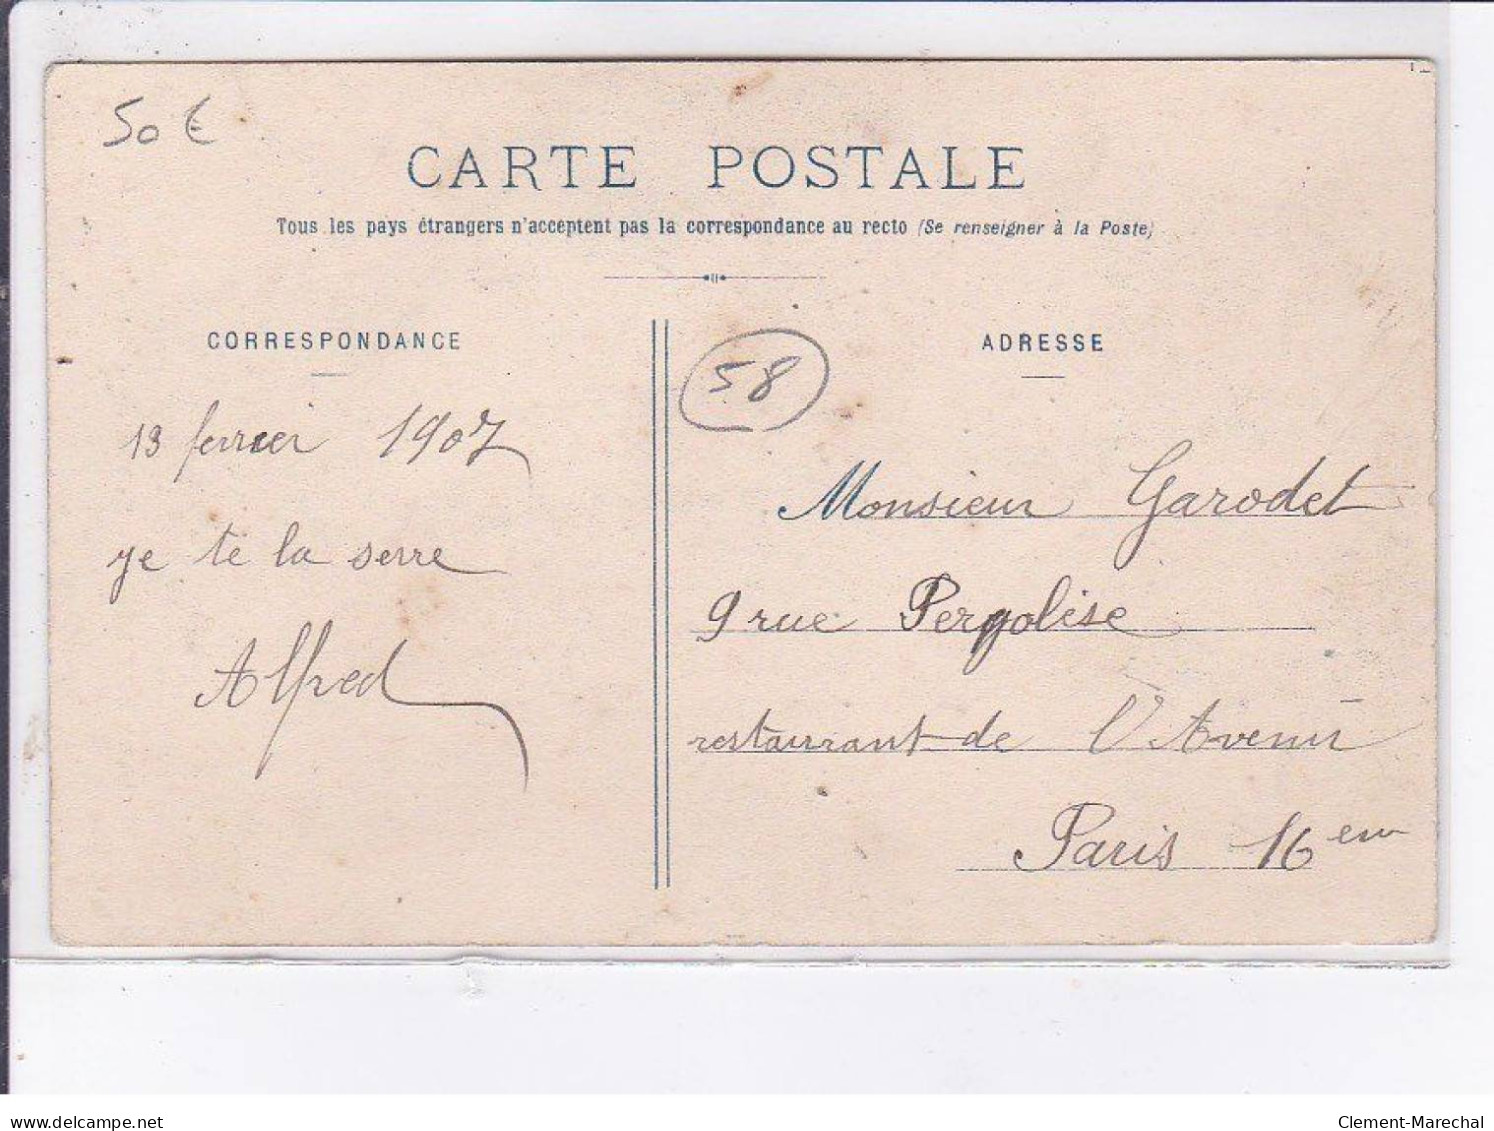 50 €
CARTE POSTALE
Tous les pays étrangers n'acceptent pas la correspondance au recto (Se renseigner à la Poste)
CORRESPONDANCE
13 ferrier 1907
je te la serre
Alfred
ADRESSE
58
Monsieur Garodet
9 rue Pergolèse
restaurant de l'Avenir
Paris 16 em
delcampe.net
Clement-Marechal